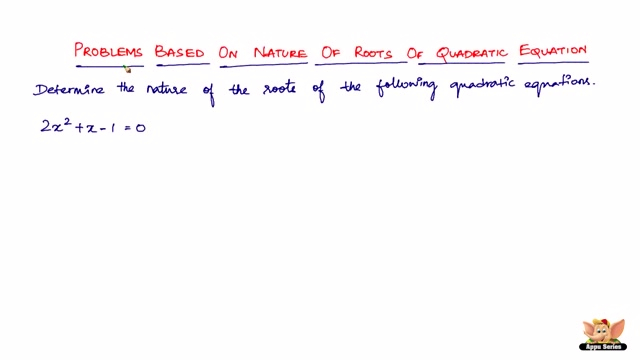 PROBLEMS BASED ON NATURE OF ROOTS OF QUADRATIC EQUATION
Determine the nature of the roots of the following quadratic equations.
2x² + x - 1 = 0
Appu Series